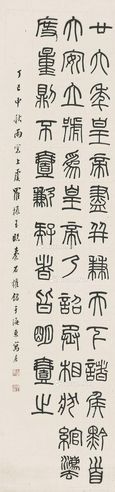 廿六年皇帝盡并兼天下諸侯黔首
大安立號為皇帝乃詔丞相狀綰灋
度量則不壹歉疑者皆明壹之
丁巳中秋雨窗上虞羅振玉臨秦石權銘于海東寓居